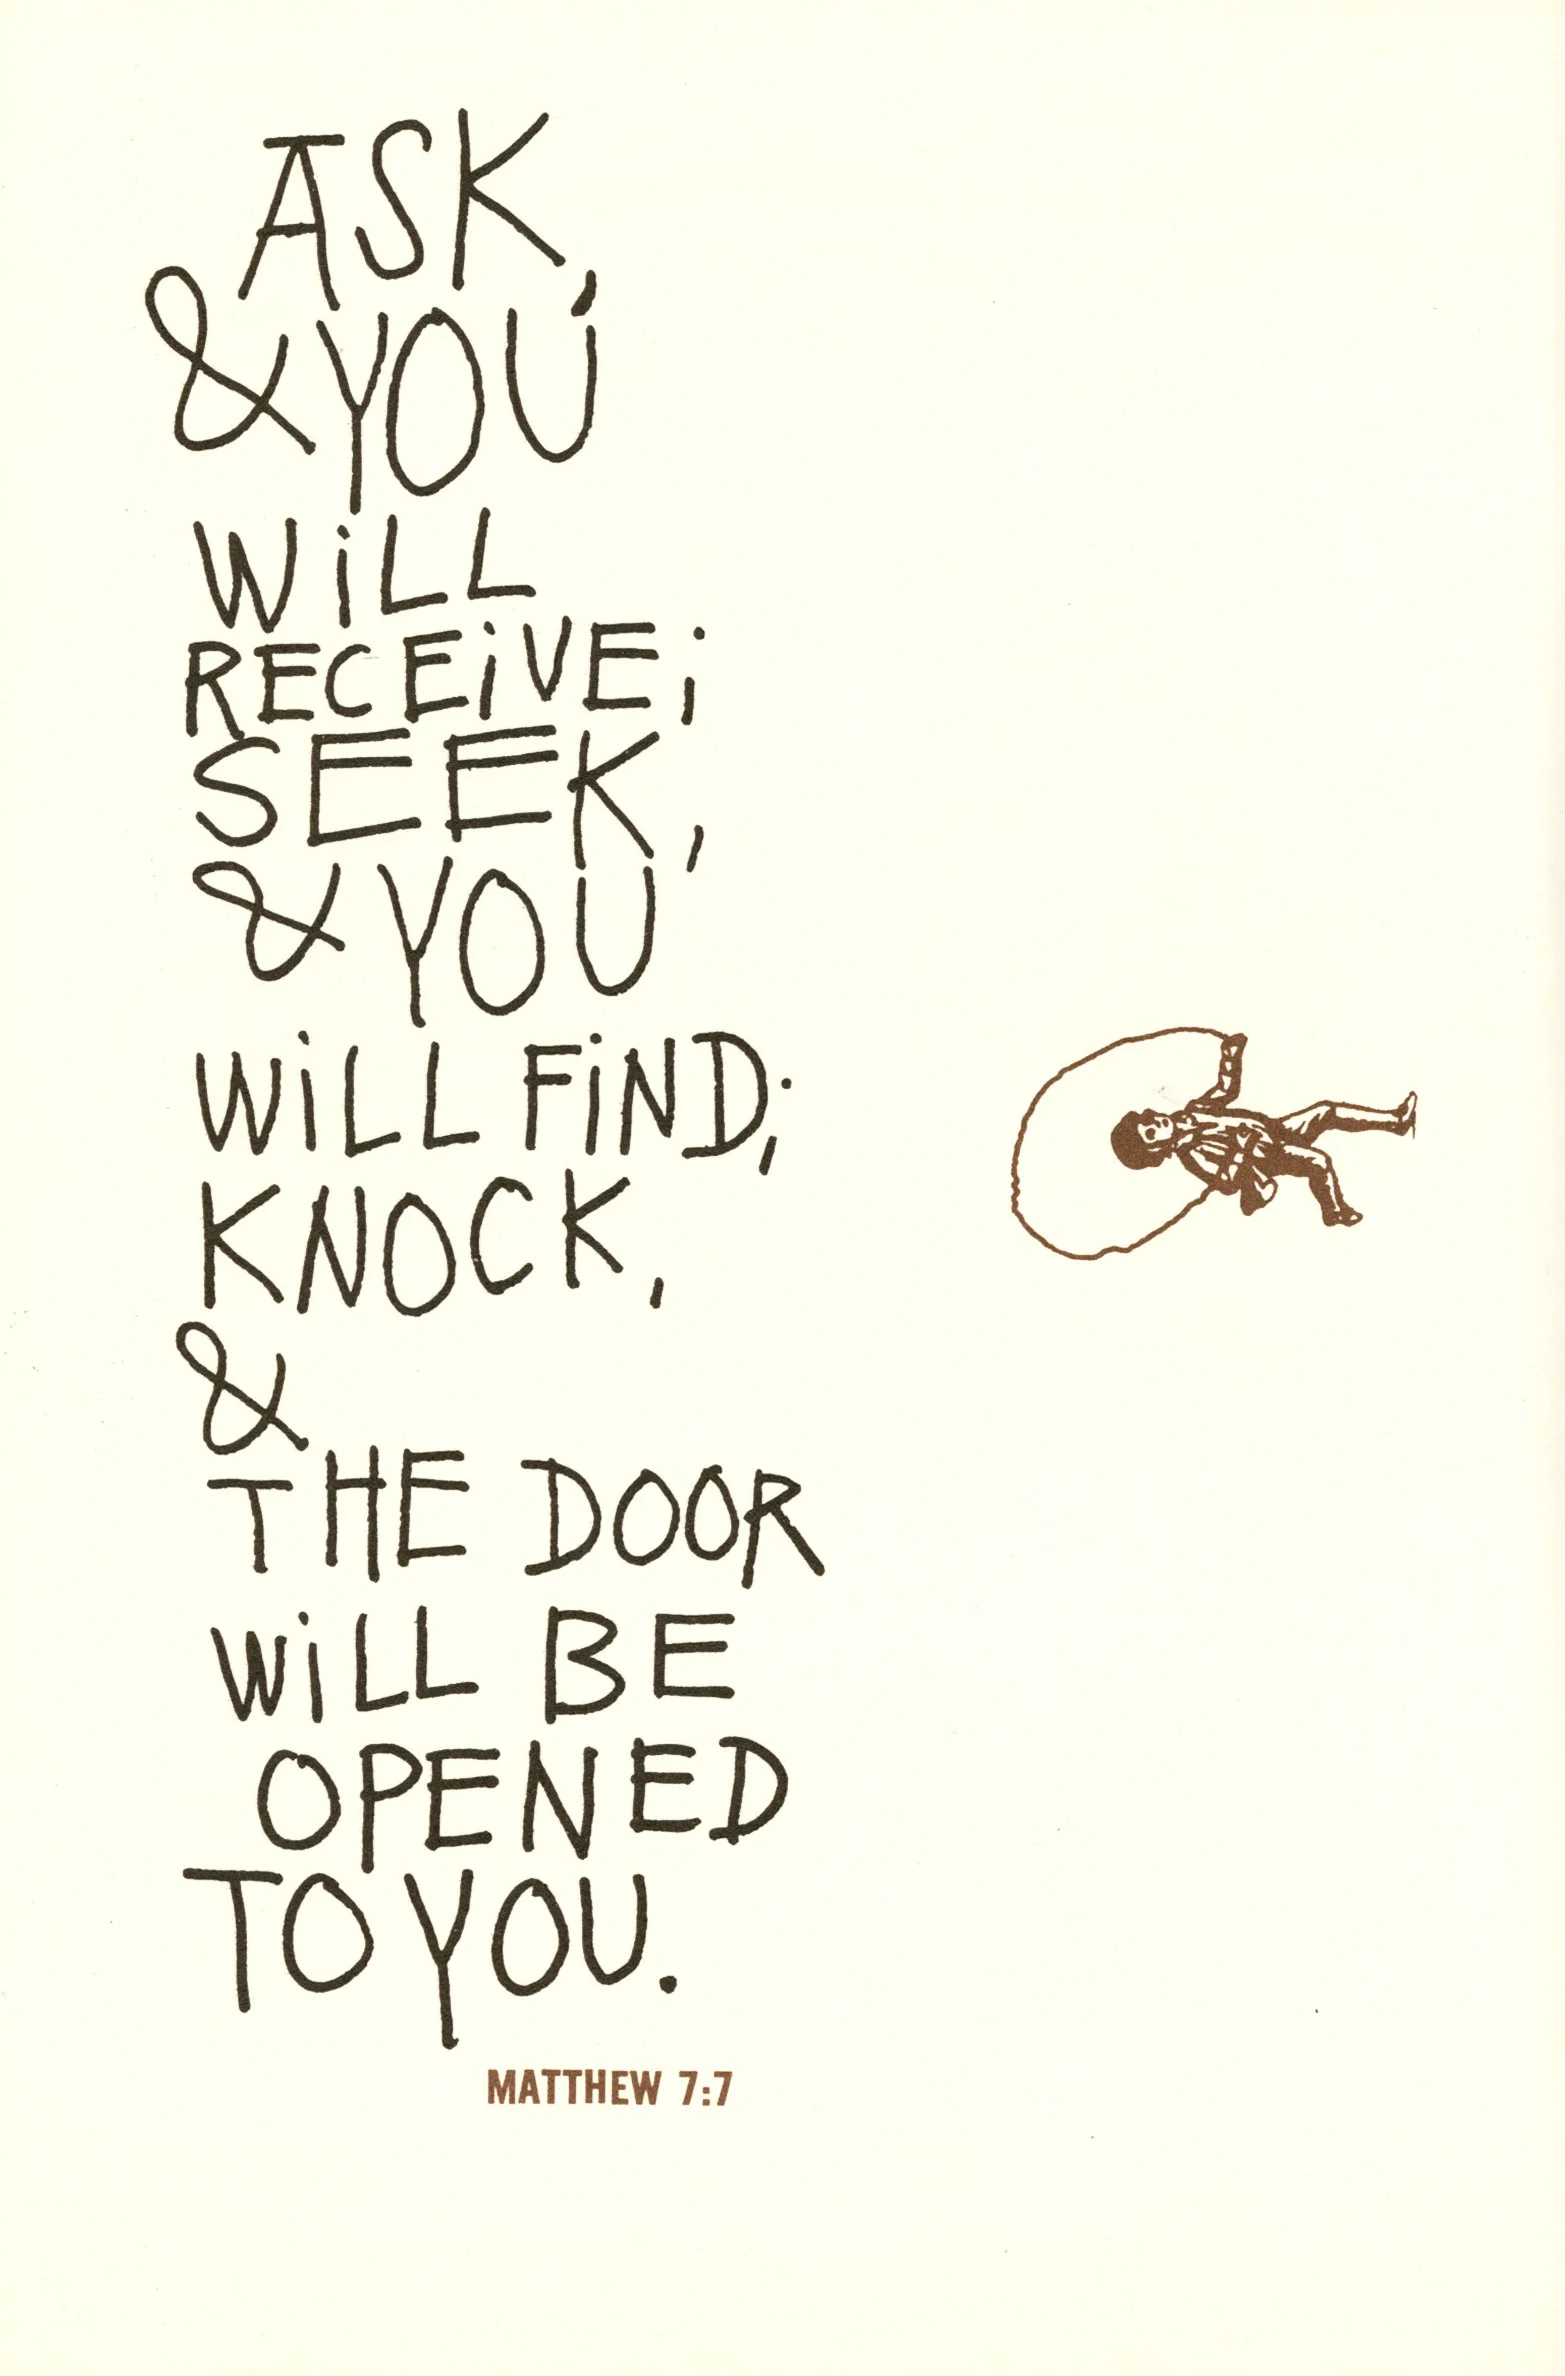 ASK,
& YOU
WiLL
RECEiVE;
SEEK,
& YOU
WiLL FiND;
KNOCK,
&
THE DOOR
WiLL BE
OPENED
TO YOU.
MATTHEW 7:7